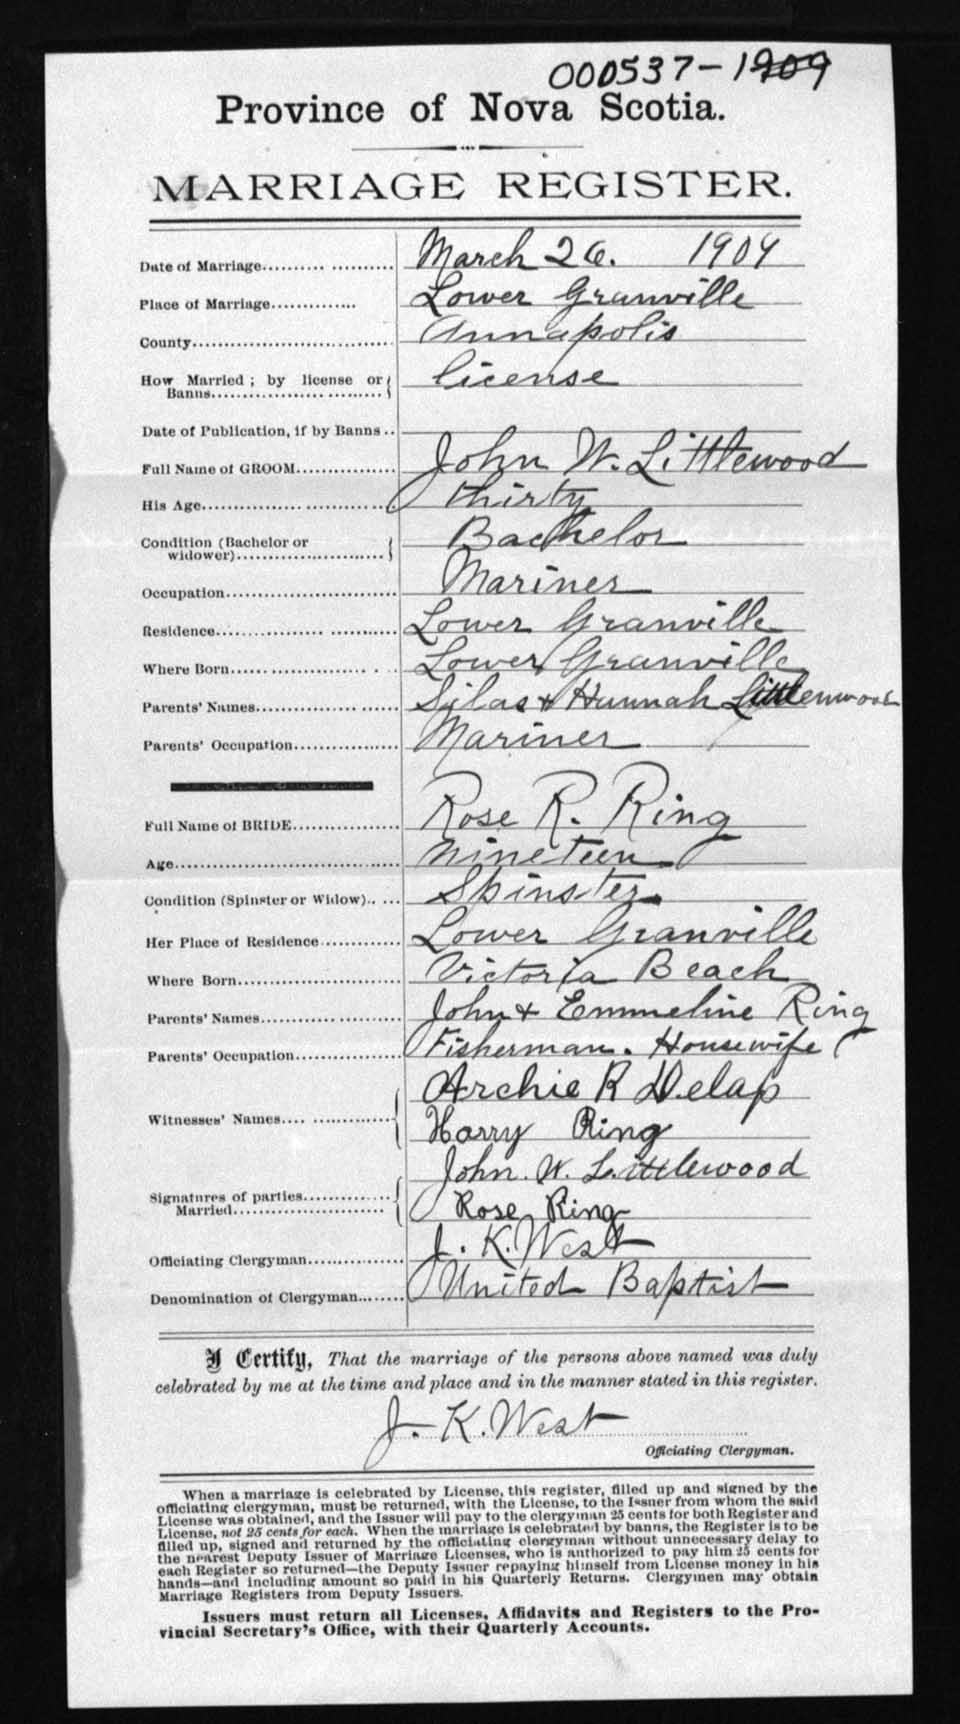 000537-1909
Province of Nova Scotia.
MARRIAGE REGISTER.
Date of Marriage.......... ........... March 26. 1909
Place of Marriage.............. Lower Granville
County................................ Annapolis
How Married ; by license or license
Banns..................... ..........
Date of Publication, if by Banns ..
Full Name of GROOM................ John W. Littlewood
His Age................. .............. thirty
Condition (Bachelor or Bachelor
widower)........................
Occupation........................... Mariner
Residence................. ........... Lower Granville
Where Born...... .............. . .. Lower Granville
Parents' Names................. ..... Silas & Hannah Littlenwood
Parents' Occupation................. Mariner
Full Name of BRIDE................. Rose R. Ring
Age................................... nineteen
Condition (Spinster or Widow).. ... Spinster
Her Place of Residence............. Lower Granville
Where Born.......................... Victoria Beach
Parents' Names................ ..... John & Emmeline Ring
Parents' Occupation................. Fisherman. Housewife
Archie R Delap
Witnesses' Names.... ..............
Harry Ring
John. W. Littlewood
Signatures of parties...............
Married......................... Rose Ring
Officiating Clergyman................ J. K. West
Denomination of Clergyman........ United Baptist
I Certify, That the marriage of the persons above named was duly
celebrated by me at the time and place and in the manner stated in this register.
J. K. West
Officiating Clergyman.
When a marriage is celebrated by License, this register, filled up and signed by the
officiating clergyman, must be returned, with the License, to the Issuer from whom the said
License was obtained, and the Issuer will pay to the clergyman 25 cents for both Register and
License, not 25 cents for each. When the marriage is celebrated by banns, the Register is to be
filled up, signed and returned by the officiating clergyman without unnecessary delay to
the nearest Deputy Issuer of Marriage Licenses, who is authorized to pay him 25 cents for
each Register so returned—the Deputy Issuer repaying himself from License money in his
hands—and including amount so paid in his Quarterly Returns. Clergymen may obtain
Marriage Registers from Deputy Issuers.
Issuers must return all Licenses, Affidavits and Registers to the Pro-
vincial Secretary's Office, with their Quarterly Accounts.